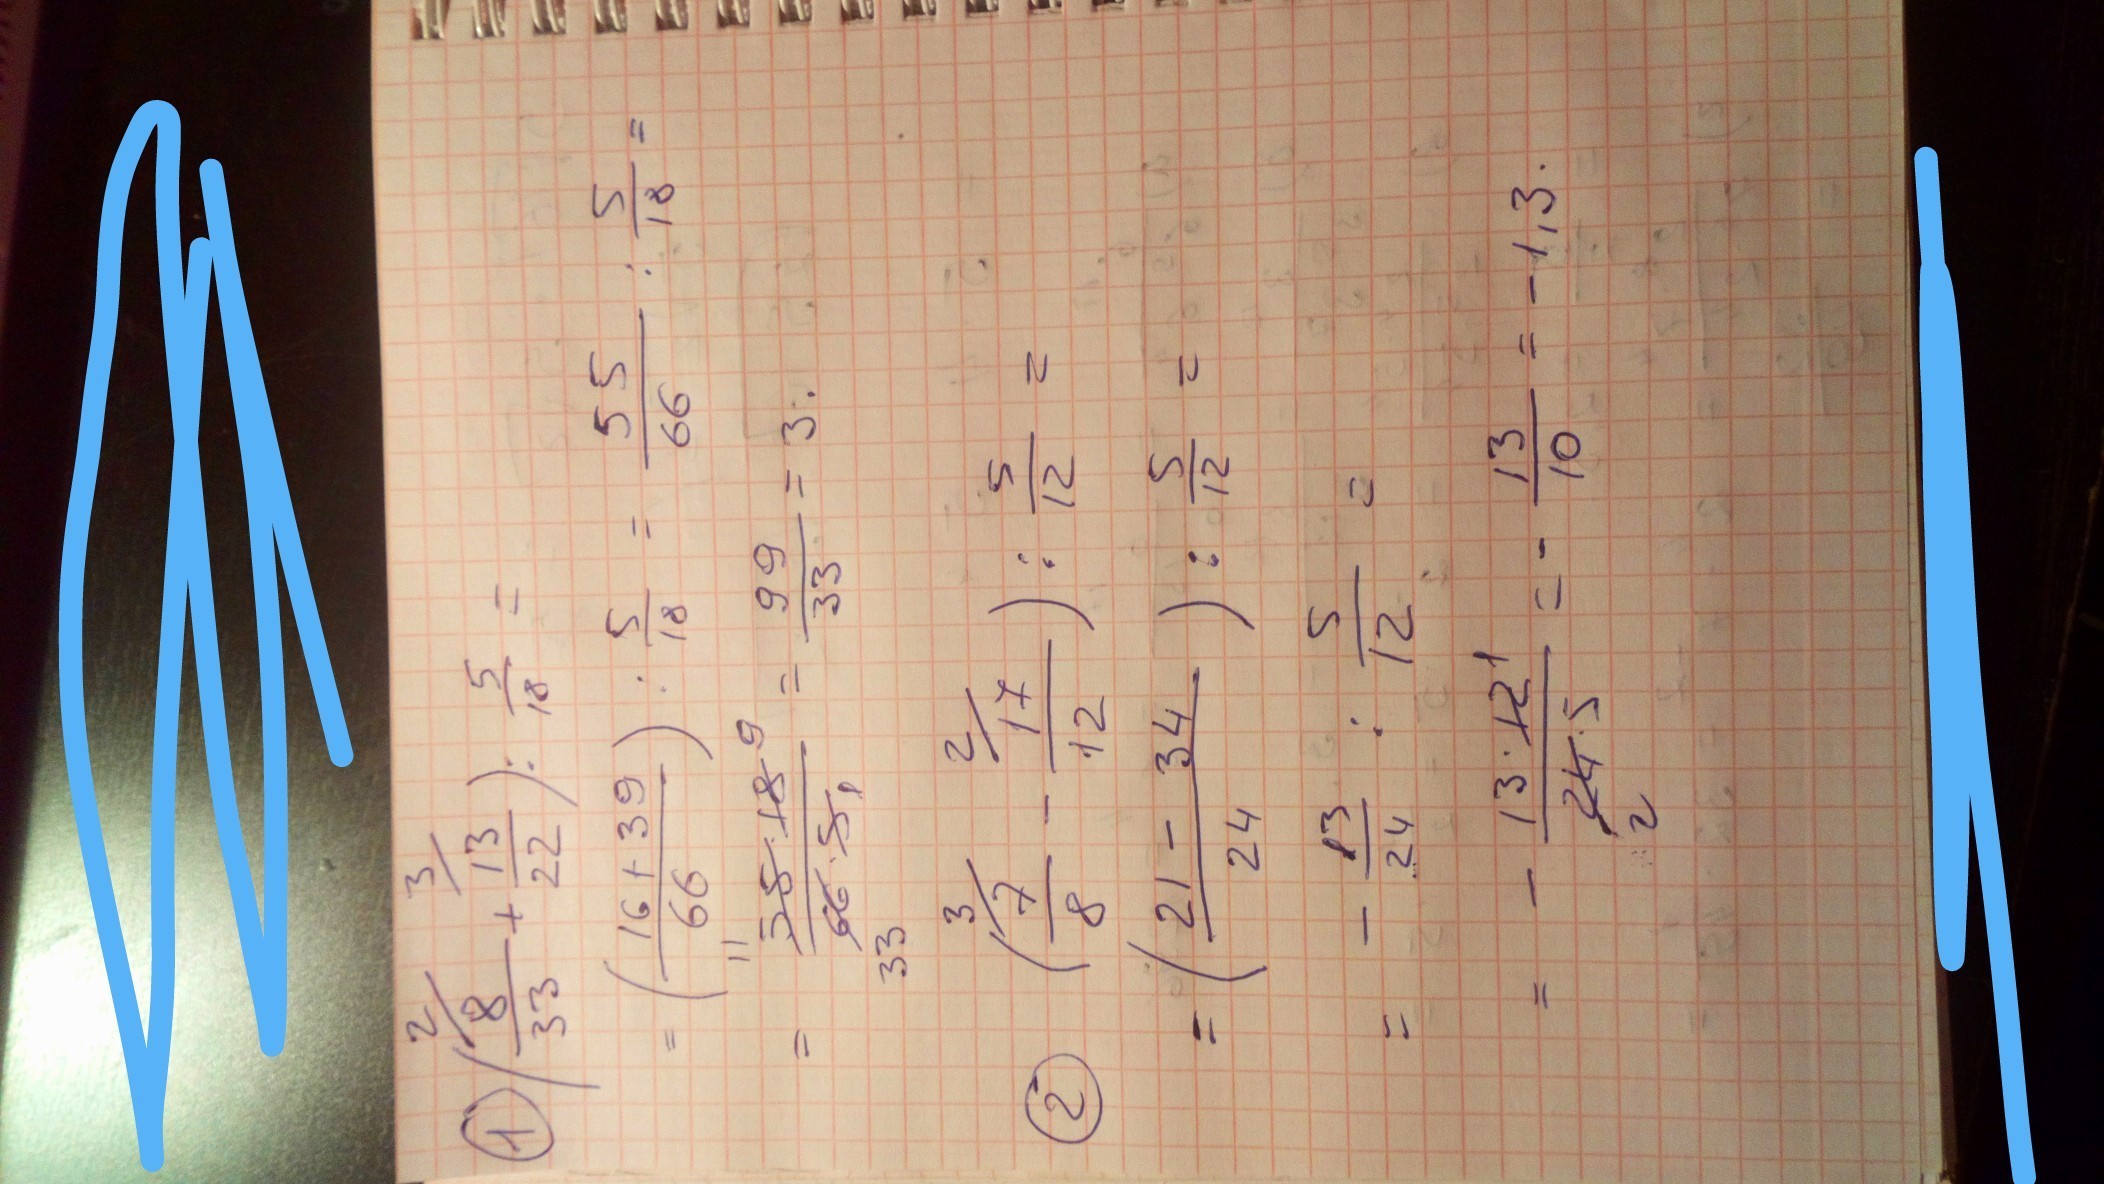 ① (2/ 8/33 + 3/ 13/22) : 5/18 =
= (16+39/66) : 5/18 = 55/66 : 5/18 =
= 11 55·18 9/66·5 1 33 = 99/33 = 3.
② (3/ 7/8 - 2/ 17/12) : 5/12 =
= (21-34/24) : 5/12 =
= - 13/24 : 5/12 =
= - 13·12 1/24·5 2 = - 13/10 = -1,3.